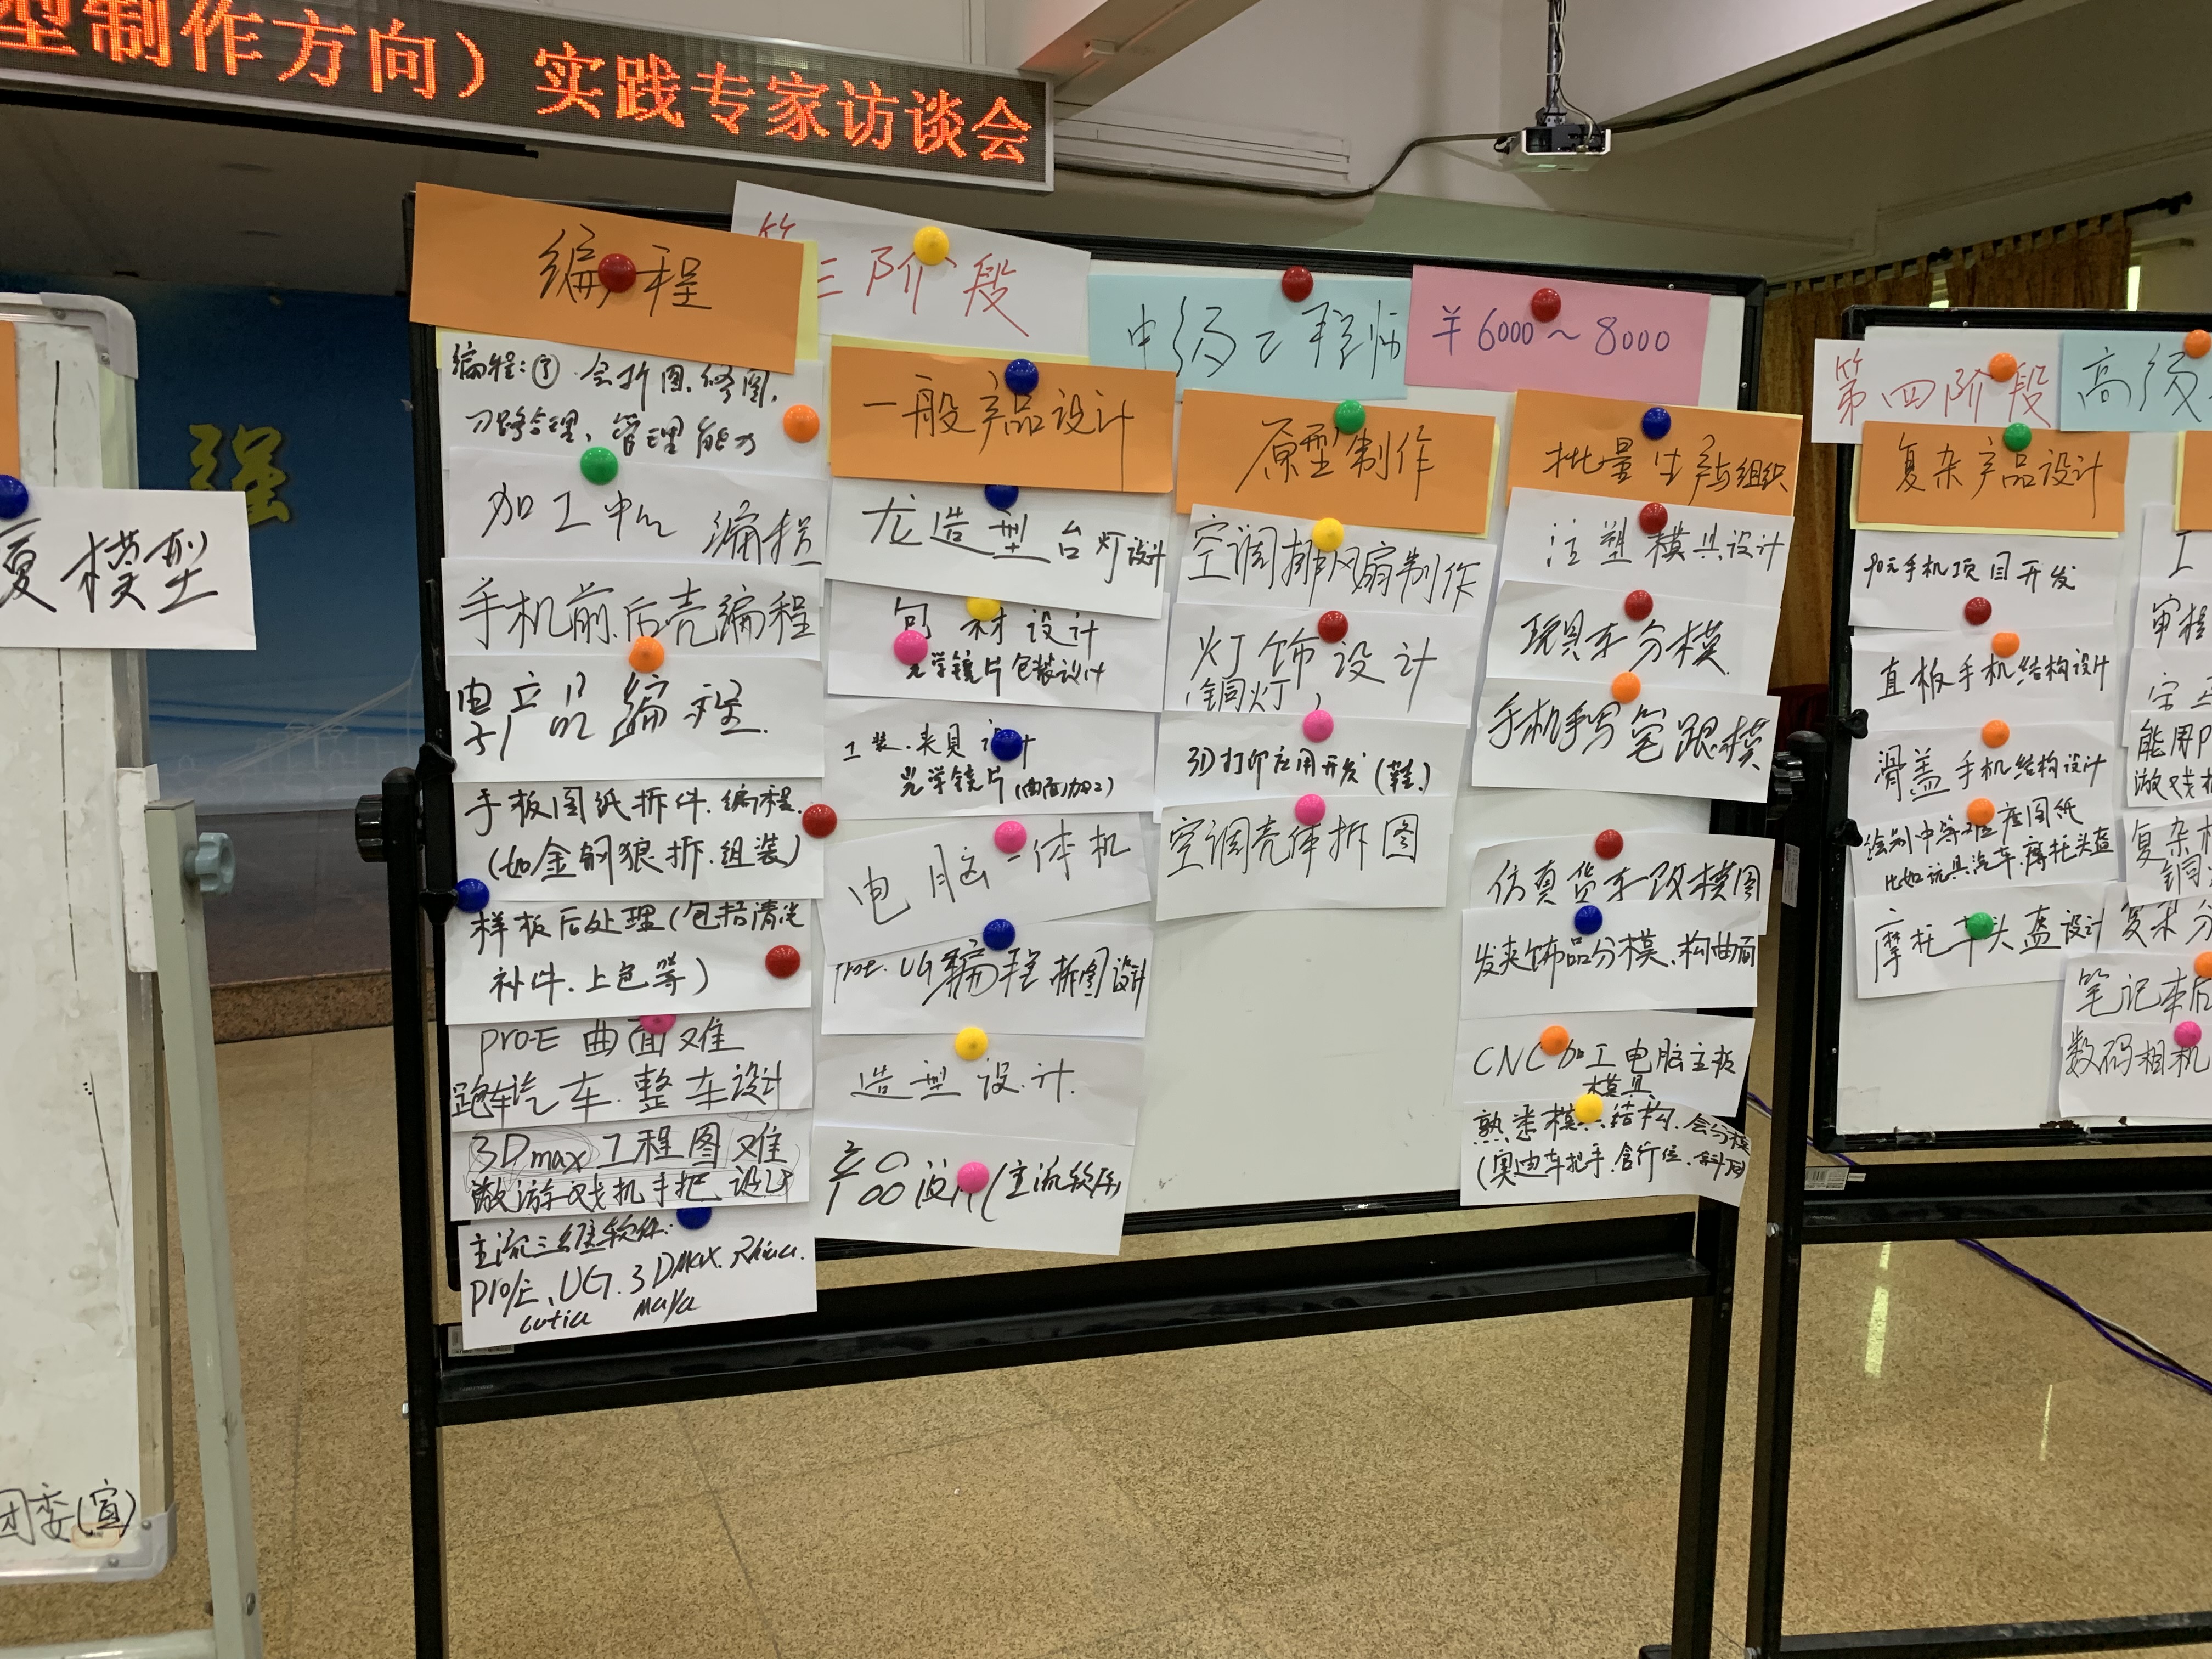 型制作方向）实践专家访谈会
强
夏模型
团委(宣)
编程
第三阶段
中级工程师
¥6000～8000
编程:① 会拆图.修图,
刀路合理、管理能力
加工中心 编程
手机前.后壳编程
电子产品编程.
手板图纸拆件.编程.
(如金钢狼拆.组装)
样板后处理(包括清光
补件.上色等)
pro-E 曲面难
跑车汽车.整车设计
3Dmax工程图难
做游戏机手把.设计
主流三维软件:
pro/E、UG.3Dmax.Rhino.
catia maya
一般产品设计
龙造型台灯设计
包材设计
光学镜片包装设计
工装.夹具设计
光学镜片(曲面加工)
电脑一体机
proe.UG编程 拆图设计
造型设计.
产品设计(主流软件)
原型制作
空调排风扇制作
灯饰设计
(铜灯)
3D打印应用开发(鞋.)
空调壳体拆图
批量生产与组织
注塑模具设计
玩具车分模.
手机手写笔跟模
仿真货车改模图
发夹饰品分模、构曲面
CNC加工电脑主板
模具
熟悉模具结构.会分模
(奥迪车把手.含行位.斜顶
第四阶段
高级
复杂产品设计
手机项目开发
直板手机结构设计
滑盖手机结构设计
绘制中等难度图纸
比如玩具汽车.摩托头盔
摩托车头盔设计
工
审核
能用P
做戏
复杂
铜
复杂分
笔记本后
数码相机